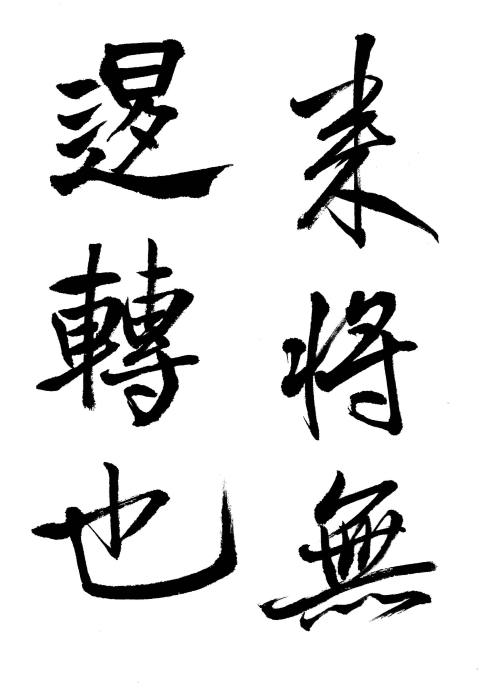 来将無
退轉也